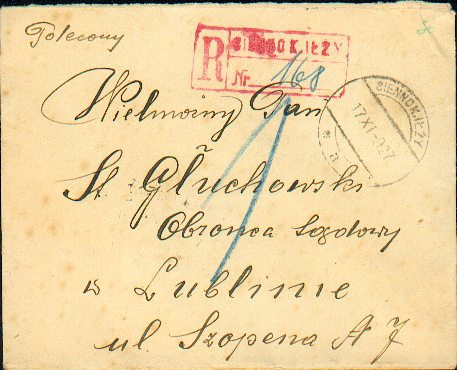 Polecony
R SIENNO K. IŁŻY
Nr. 168
SIENNO K. IŁŻY
17 XI 937
a
Wielmożny Pan
St. Głuchowski
Obronca Sądowy
w Lublinie
ul Szopena № 7